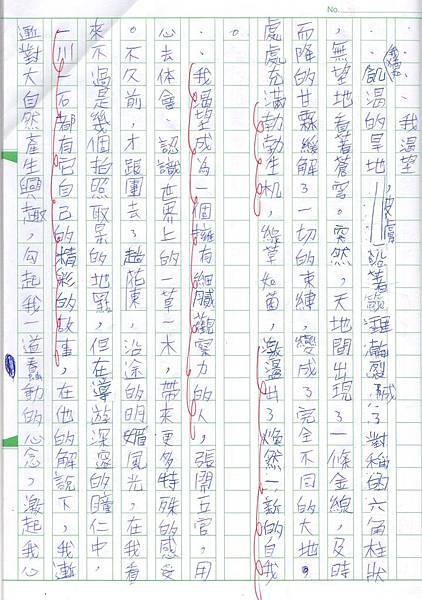 No.
我渴望
飢渴的旱地，皮膚沿著紋理龜裂，成了對稱的六角柱狀
，無望地看著蒼穹。突然，天地間出現了一條金線，及時
而降的甘霖緩解了一切的束縛，變成了完全不同的大地。
處處充滿勃勃生机，綠草如茵，激盪出了煥然一新的自我
。
我渴望成為一個擁有細膩觀察力的人，張開五官，用
心去体會、認識世界上的一草一木，帶來更多特殊的感受
。不久前，才跟團去了趟佑東，沿途的明媚風光，在我看
來不過是幾個拍照取景的地點，但在導遊深邃的瞳仁中，
一川一石都有它自己的精彩的故事，在他的解說下，我漸
漸對大自然產生興趣，勾起我一道蠢動的心念，激起我心